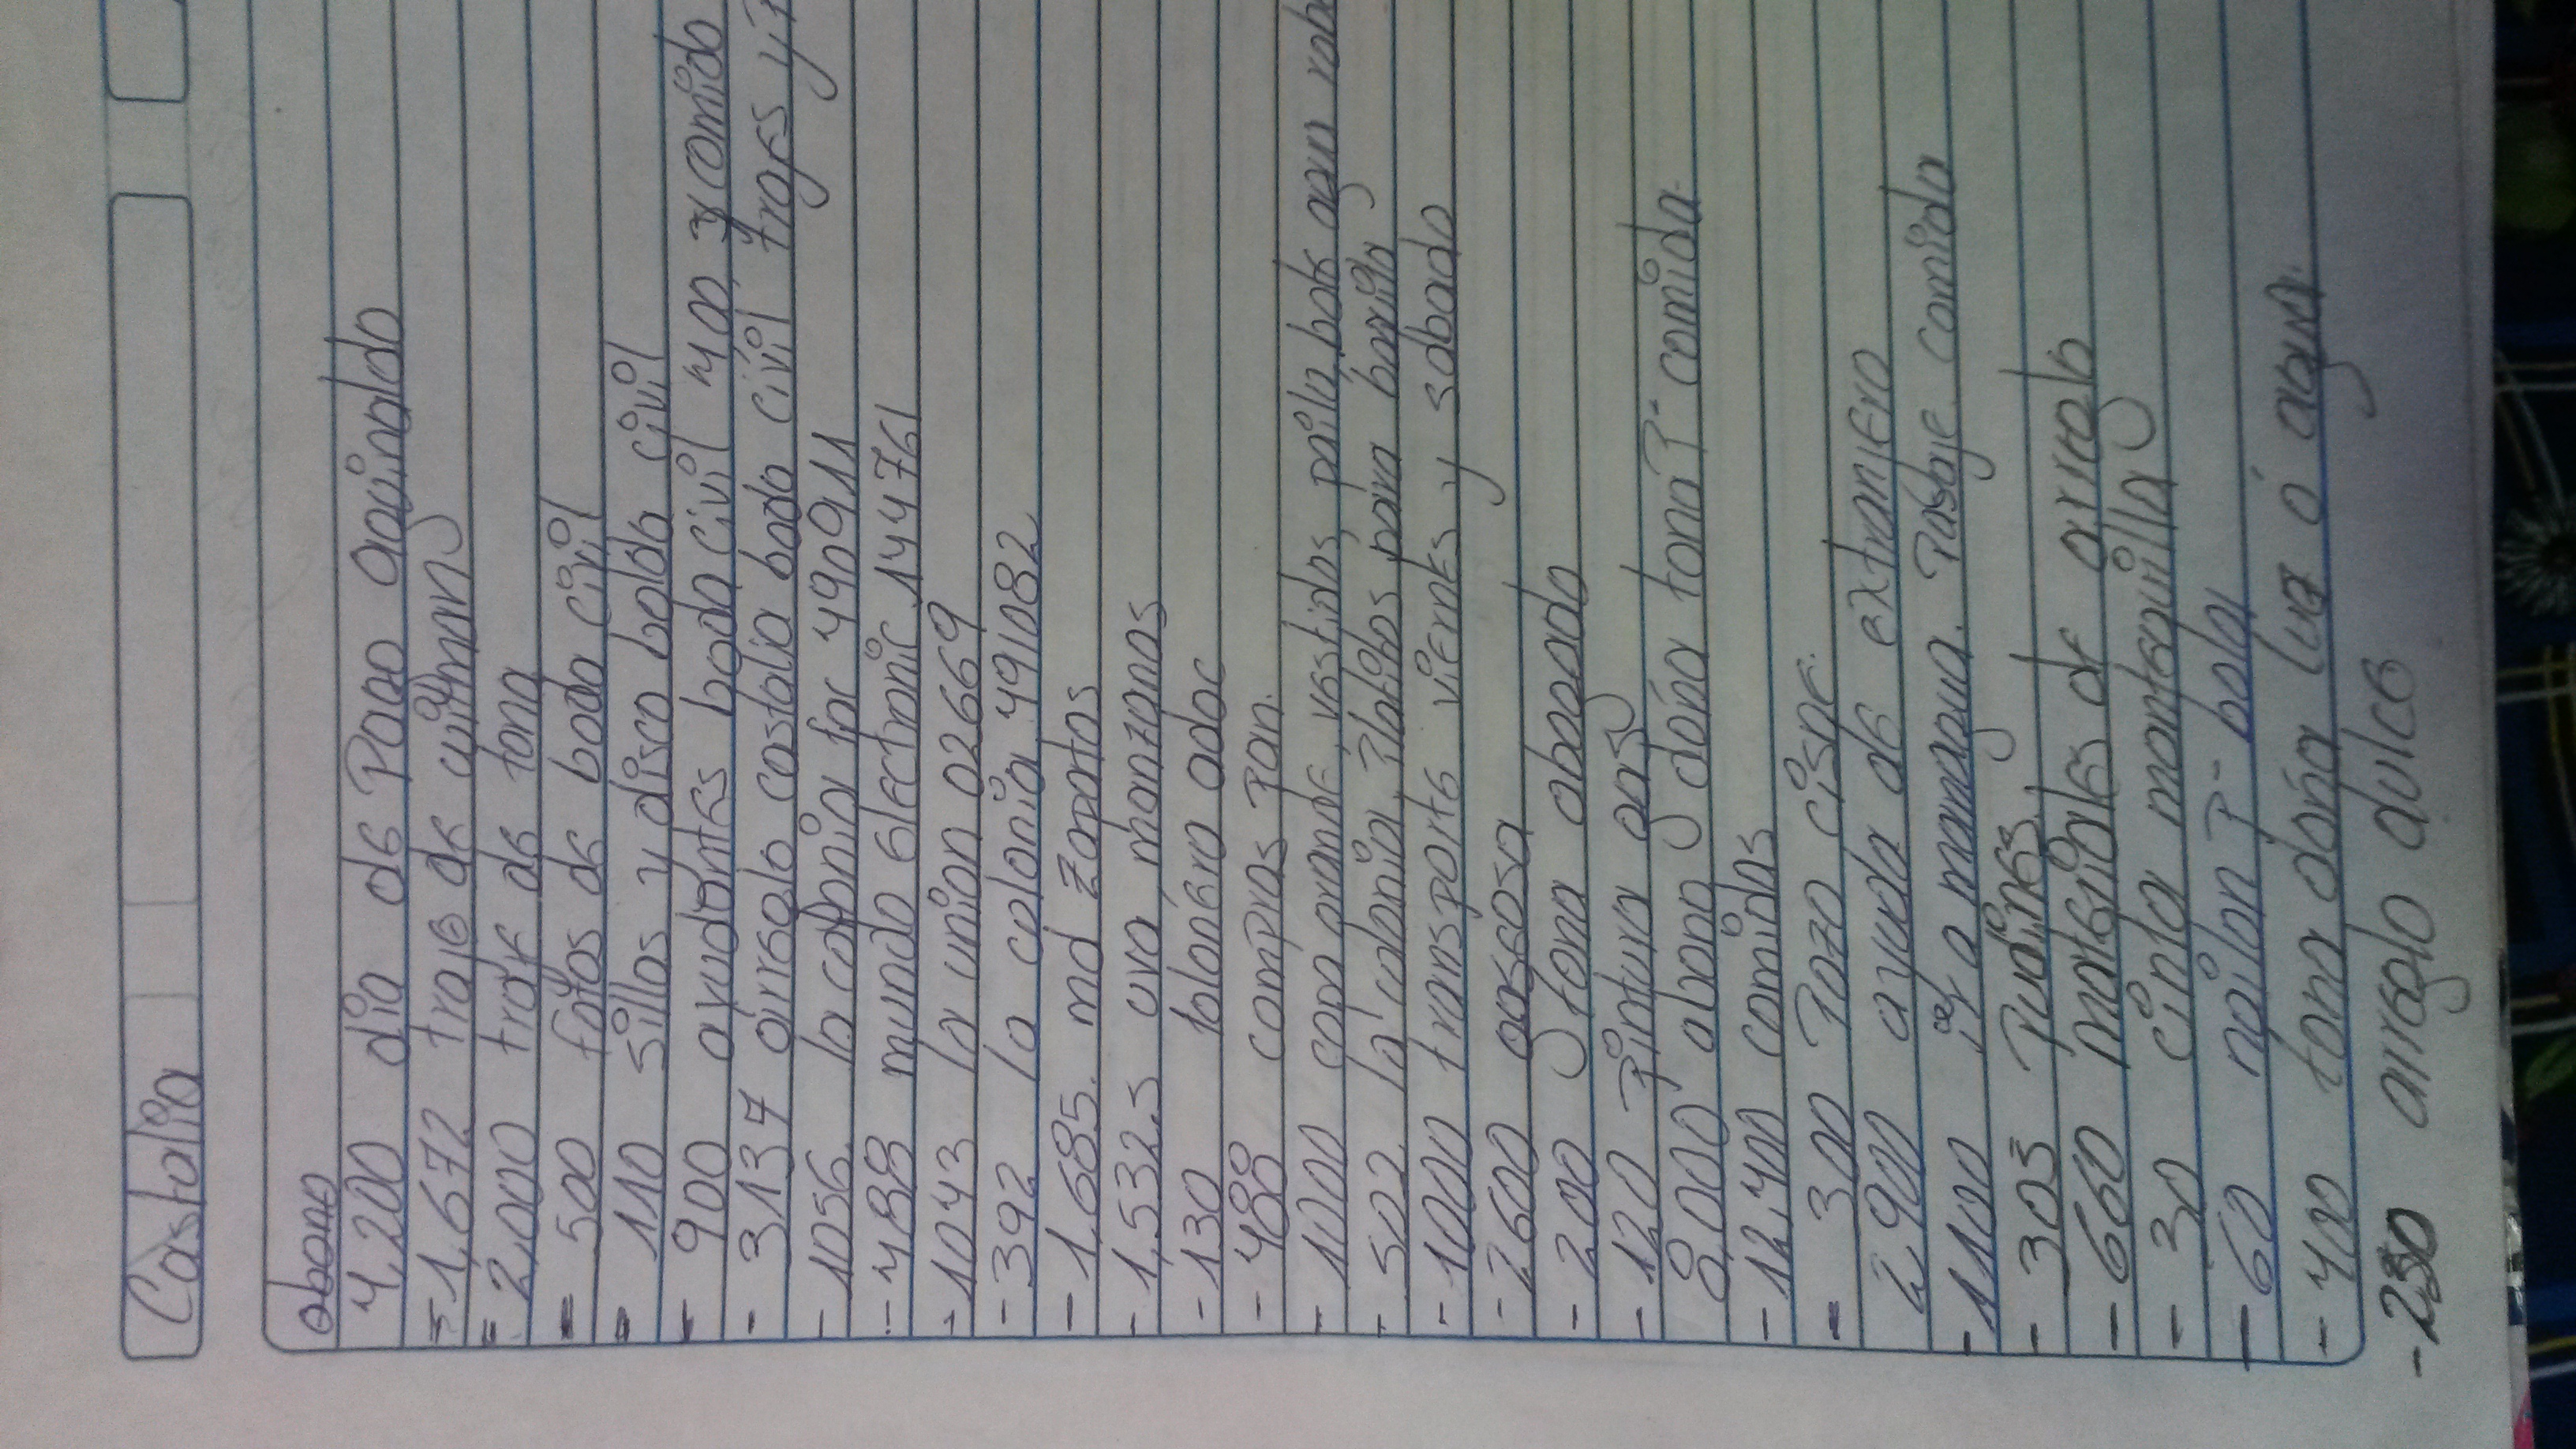 Castalia
abono
4,200 dia de Pago aguinaldo
-1,672 traje de witman
-2,000 traje de tona
- 500 fotos de boda civil
- 110 sillas y disco bolda civil
- 900 ayudantes boda civil 400 y comida
- 3137 arreglo castalia boda civil trajes y
-1056 la colonia fac 490911
-488 mundo electronic 144761
-1043 la union 02669
-392 la colonia 491082
-1,685. md zapatos
-1,532.5 uva, manzanas
-130 talonario adoc
-488 compras pan.
-1000 copa grande, vestidos, paila, bote agua
-502 la colonia, Platitos para
-1000 transporte viernes y sabado
-2600 gaseosa
-200 tona abogado
-120 Pintura gas
8,000 abono doña tona P- comida
-12,400 comidas
- 300 Pozo cisne.
2,900 ayuda de extranjero
-1100 ir a managua. Pasaje comida
- 305 Pudines
-660 materiales de arreglo
- 30 cinta mantequilla
-60 nailon P- bola
-400 tona doña luz o agua.
-250 arreglo dulce